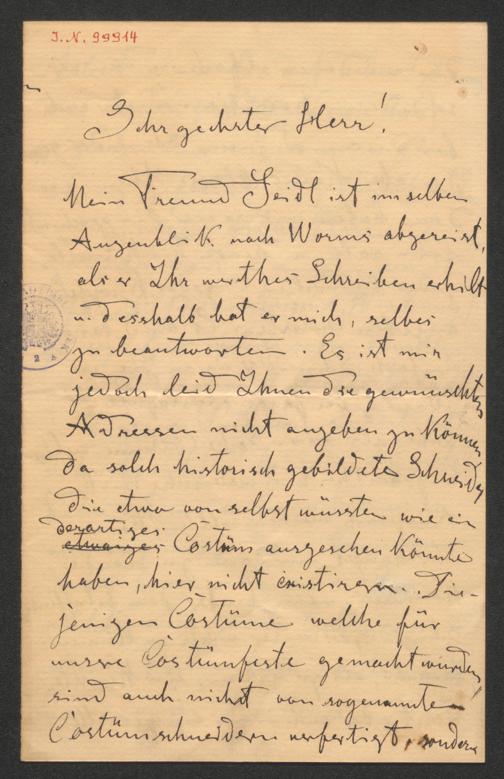 I. N. 99914
Sehr geehrter Herr!
Mein Freund Seidl ist im selben
Augenblik nach Worms abgereist,
als er Ihr werthes Schreiben erhilt
u. desshalb bat er mich, selbes
zu beantworten. Es ist mir
jedoch leid Ihnen die gewünschten
Adressen nicht angeben zu können
da solch historisch gebildete Schneider
die etwa von selbst wüssten wie ein
derartiges
etwaiges Costüm ausgesehen könnte
haben, hier nicht existiren. Die-
jenigen Costüme welche für
unsre Costümfeste gemacht wurden,
sind auch nicht von sogenannten
Costümschneidern verfertigt, sondern